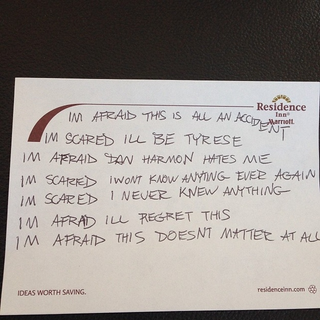 Residence
Inn®
Marriott
IM AFRAID THIS IS ALL AN ACCIDENT
IM SCARED ILL BE TYRESE
IM AFRAID DAN HARMON HATES ME
IM SCARED I WONT KNOW ANYTING EVER AGAIN
IM SCARED I NEVER KNEW ANYTHING
IM AFRAID ILL REGRET THIS
IM AFRAID THIS DOESNT MATTER AT ALL
IDEAS WORTH SAVING.
residenceinn.com